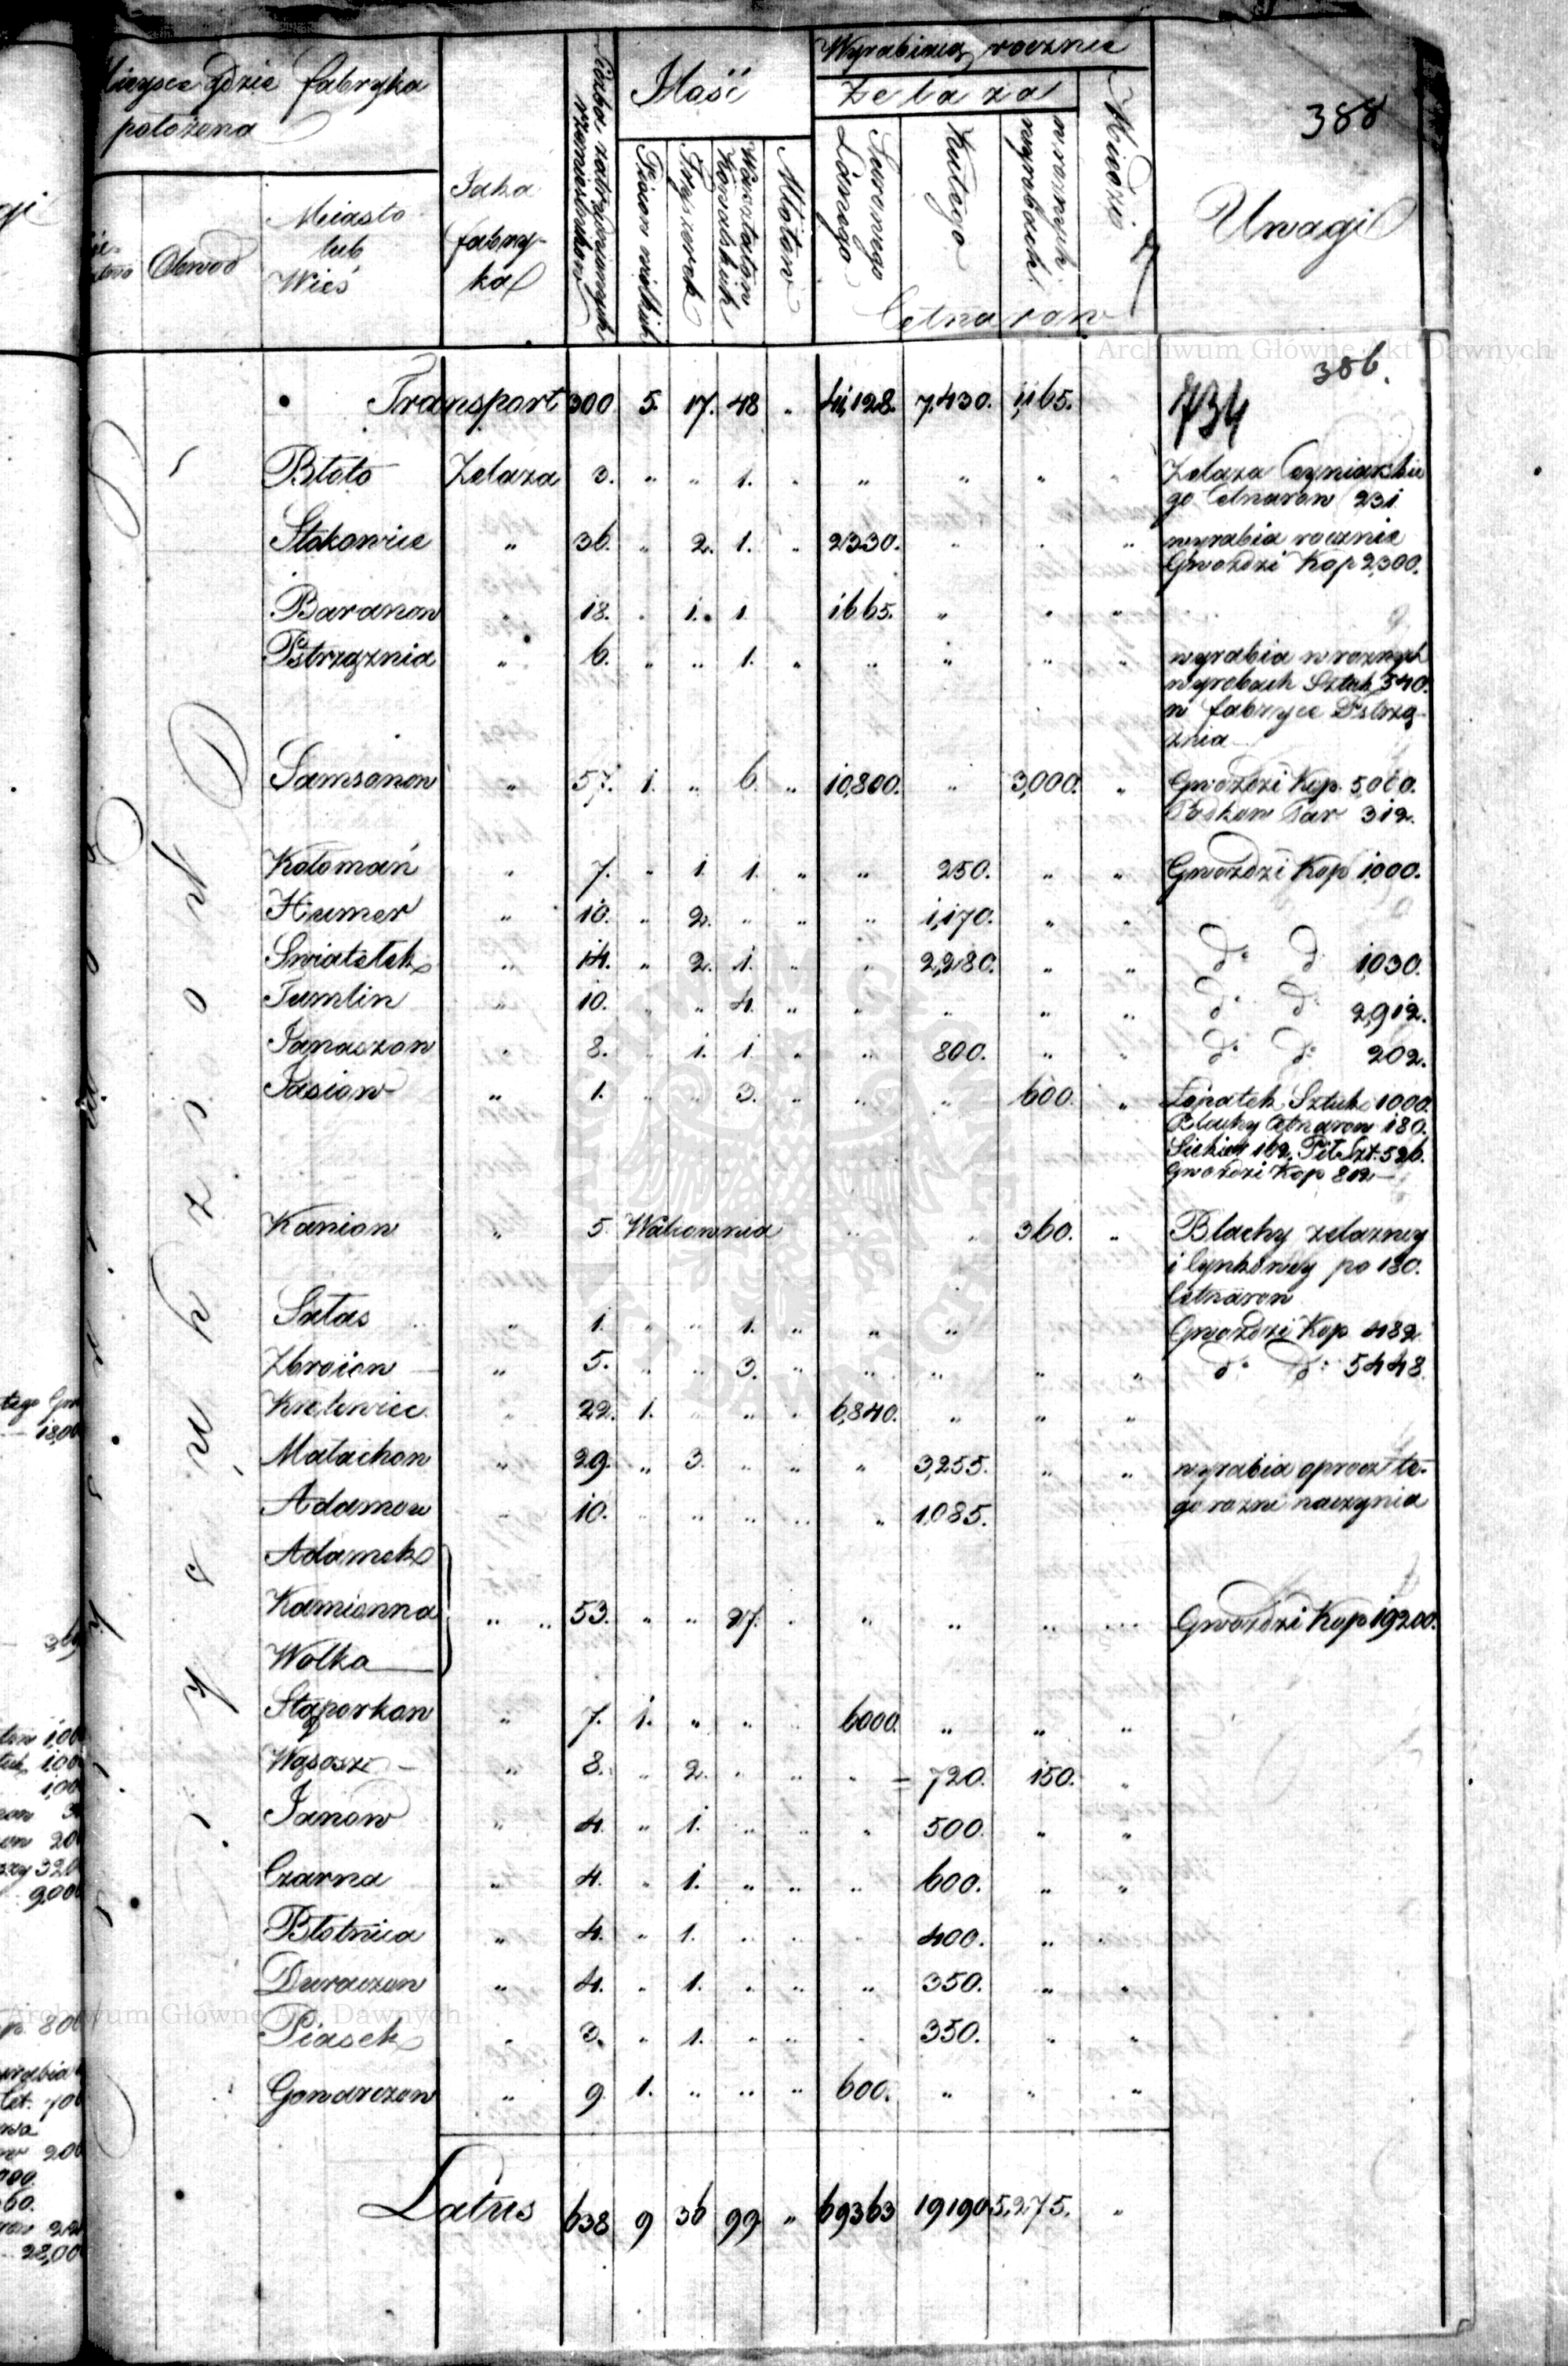 Mieysce gdzie fabryka położona
Obwod
Miasto lub Wieś
Jaka fabryka
Liczba zatrudnionych rzemieslnikow
Ilość
Piecow wielkich
Fryszerek
Warsztatow Kowalskich
Młotow
Wyrabiaią rocznie
Żelaza
Surowego Lanego
Kutego
w roznych wyrobach
Miedzi
Cetnarow
Uwagi
388
Archiwum Główne Akt Dawnych
386.
734
Transport 300 5. 17. 48 „ 41,128. 7,430. 1,165.
Błoto Żelaza 3. „ „ 1. „ „ „ „ Zelaza Cyniarskie
go Cetnarow 231
Stokowice „ 36. „ 2. 1. „ 2330. „ „ „ wyrabia rocznie
Gwozdzi Kop 2,300.
Baranow „ 18. „ 1. 1. 1665. „ „ „
Pstrzążnia „ 6. „ „ 1. „ „ „ „ „ wyrabia w roznych
wyrobach Sztuk 340.
w fabryce Pstrzą-
żnia
Samsonow „ 57. 1. „ 6. „ 10,800. „ 3,000. „ Gwozdzi Kop. 5,000.
Podkow Par 312.
Kołomań „ 7. „ 1. 1. „ „ 250. „ „ Gwozdzi Kop 1,000.
Humer „ 10. „ 2. „ „ „ 1,170. „ „
Swiatełek „ 14. „ 2. 1. „ „ 2,280. „ „ do do 1,030.
Tumlin „ 10. „ „ 4. „ „ „ „ „ do do 2,912.
Janaszow „ 8. „ 1. 1. „ „ 800. „ „ do do 202.
Jasiow „ 1. „ „ 3. „ „ „ 600. „ Łopatek Sztuk 1000.
Blachy Cetnarow 180.
Siekier 162, Pił Szt. 526.
Gwozdzi Kop 802
Kaniow „ 5 Walcownia „ „ 360. „ Blachy zelazney
i Cynkowey po 180.
Cetnarow
Sałas „ 1. „ „ 1. „ „ „ Gwozdzi Kop 482
Zbroiow „ 5. „ „ 3. „ „ „ „ „ do do 5448
Krolewiec „ 22. 1. „ „ „ 6,840. „ „ „
Małachow „ 29. „ 3. „ „ „ 3,255. „ „ wyrabia oprocz te-
go rozne naczynia
Adamow „ 10. „ „ „ „ „ 1,085.
Adamek
Kamionna „ „ 53. „ „ 27. „ „ „ „ „ Gwozdzi Kop 19200.
Wolka
Stąporkow „ 7. 1. „ „ „ 6000. „ „ „
Wąsosz „ 8. „ 2. „ „ „ 720. 150. „
Janow „ 4. „ 1. „ „ „ 500. „ „
Czarna „ 4. „ 1. „ „ „ 600. „ „
Błotnica „ 4. „ 1. „ „ „ 400. „ „
Duraczow „ 4. „ 1. „ „ „ 350. „ „
Archiwum Główne Akt Dawnych
Piasek „ 3. „ 1. „ „ „ 350. „ „
Gowarczow „ 9 1. „ „ „ 600. „ „ „
Latus 638 9 36 99 „ 69363 19190 5,275. „